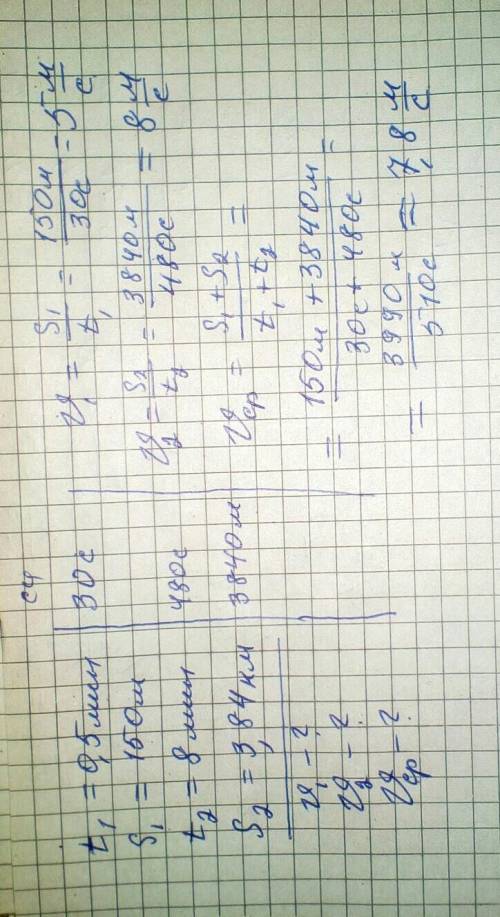 СИ
t₁ = 0,5 мин | 30с
S₁ = 150м
t₂ = 8 мин | 480с
S₂ = 3,84 км | 3840м
v₁ - ?
v₂ - ?
vср - ?
v₁ = S₁/t₁ = 150м/30с = 5 м/с
v₂ = S₂/t₂ = 3840м/480с = 8 м/с
vср = (S₁+S₂)/(t₁+t₂) =
= (150м + 3840м)/(30с + 480с) =
= 3990м/510с = 7,8 м/с